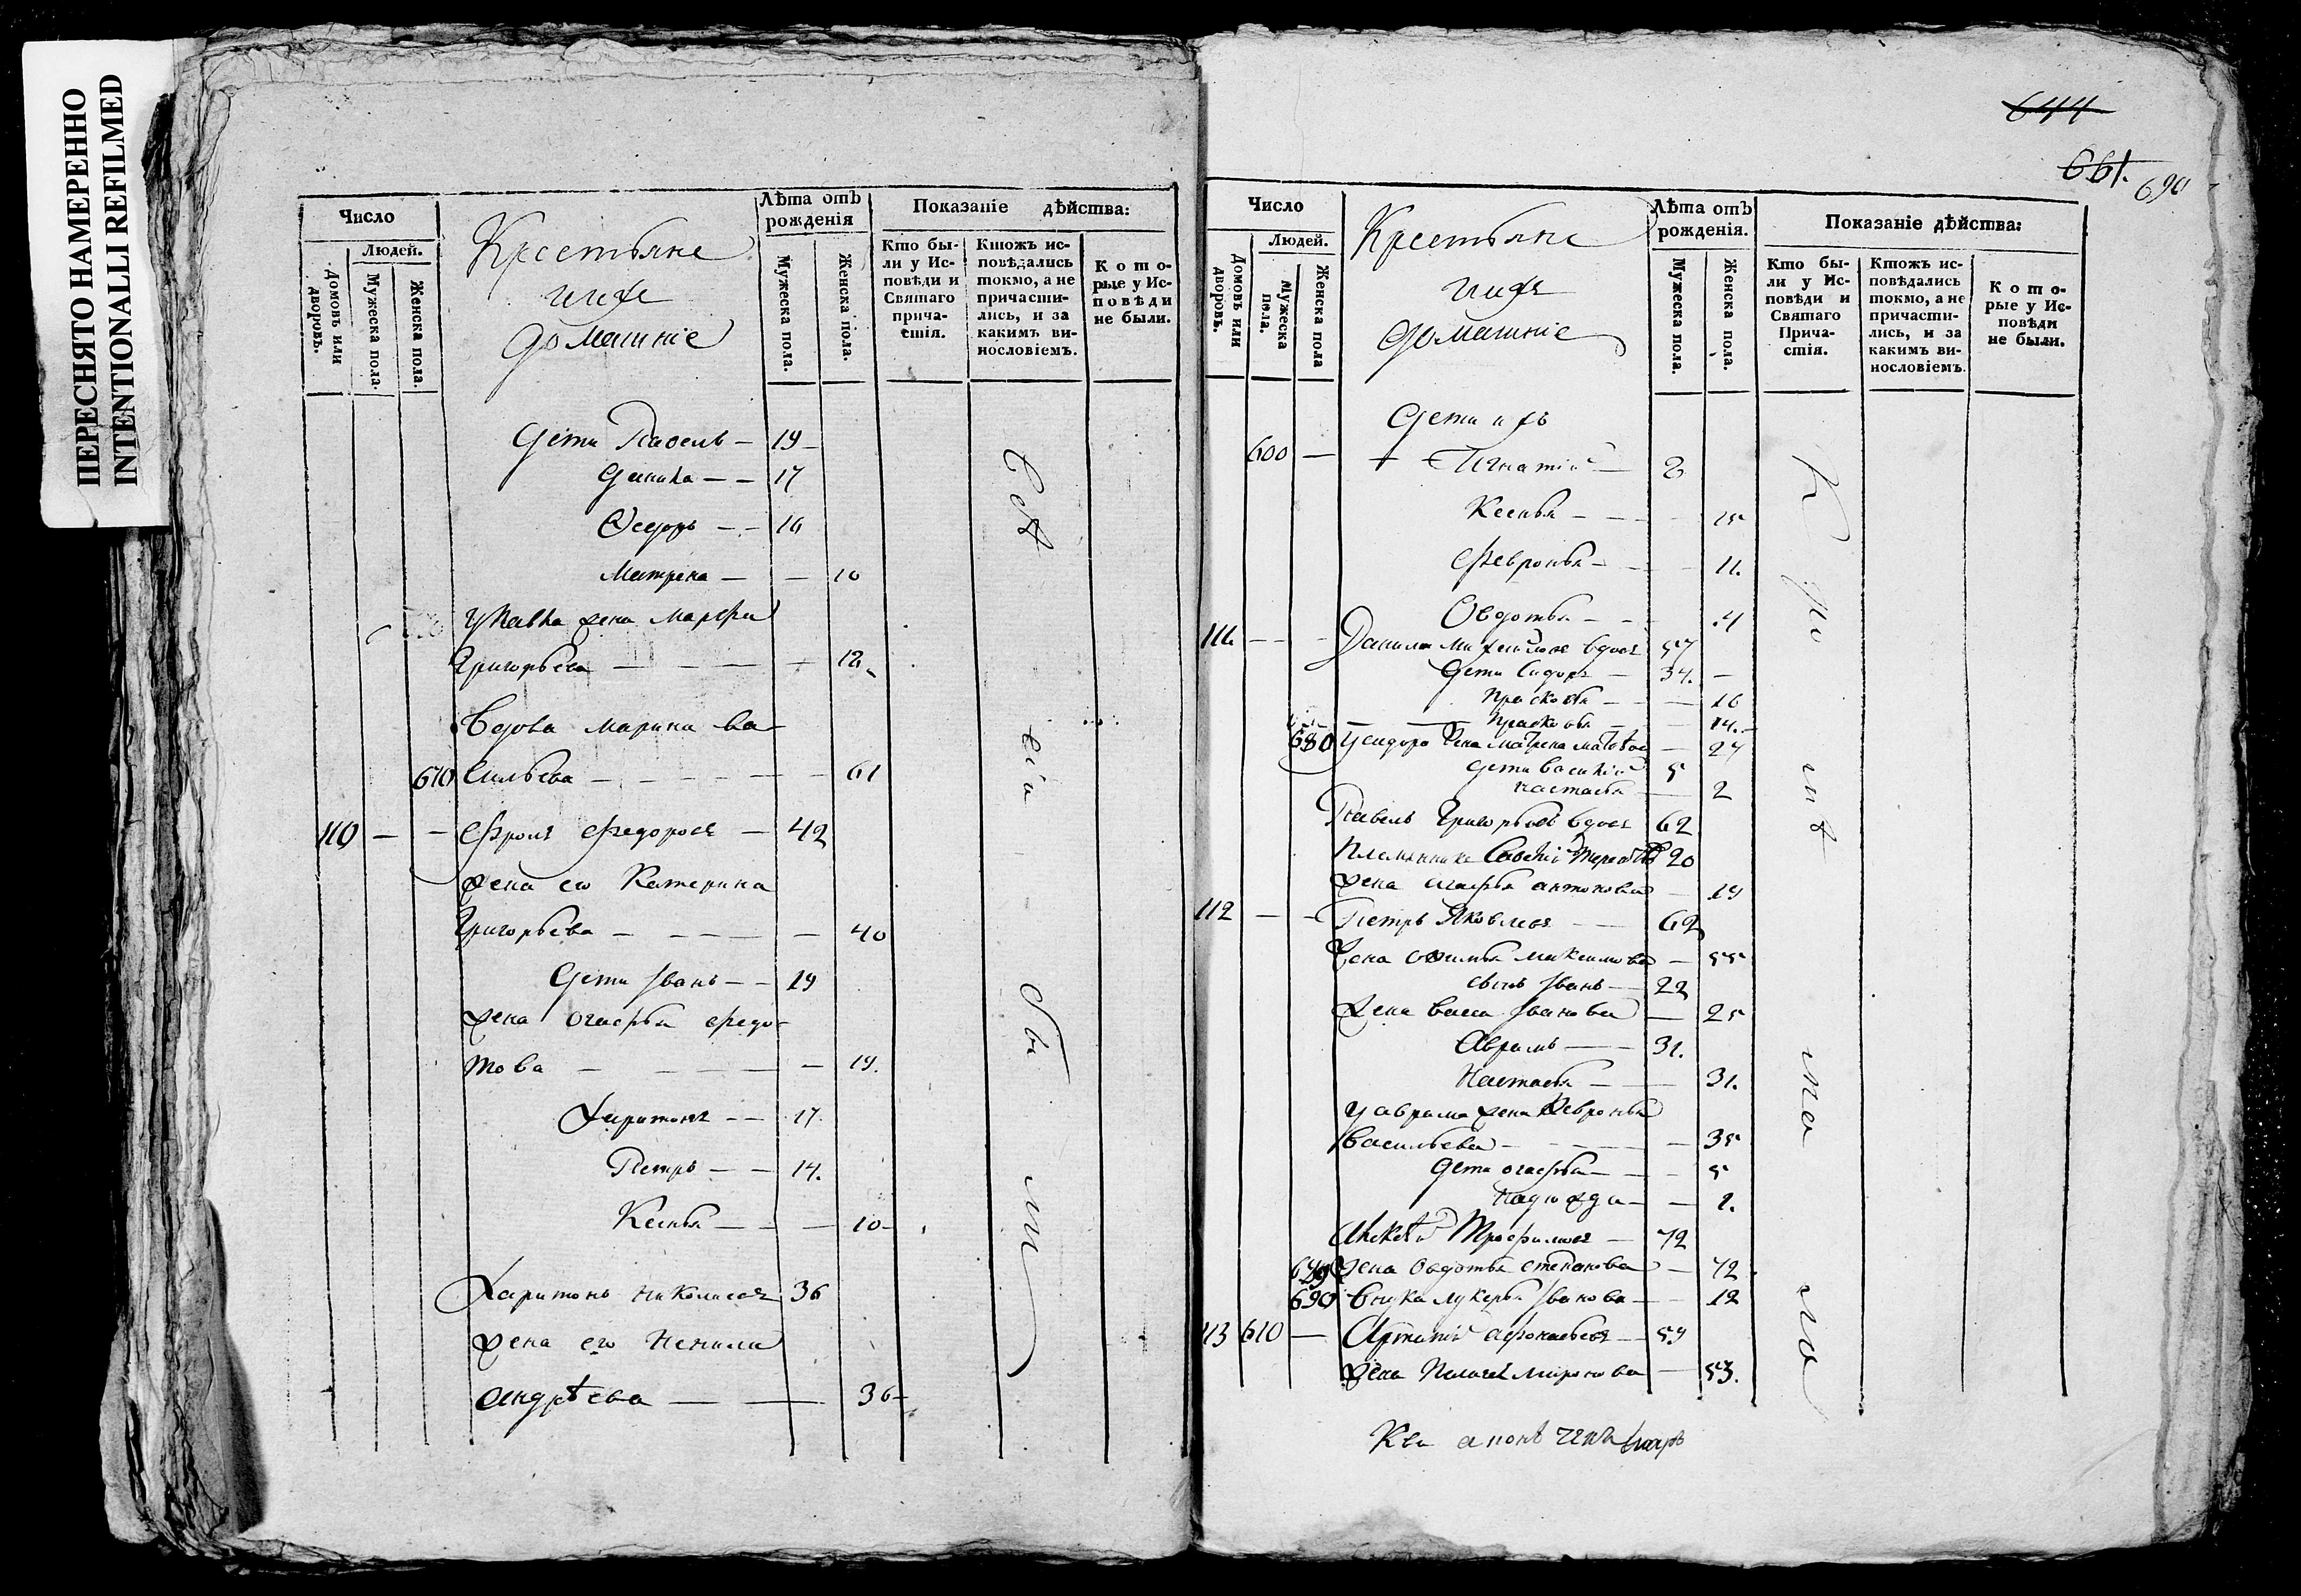 ПЕРЕСНЯТО НАМЕРЕННО
INTENTIONALLI REFILMED
Число
Людей.
Домовъ или дворовъ.
Мужеска пола.
Женска пола.
Крестьяне
ихъ
домашніе
Лѣта отъ рожденія
Мужеска пола.
Женска пола.
Показаніе дѣйства:
Кто бы-
ли у Ис-
повѣди и
Святаго
прича-
стія.
Ктожъ ис-
повѣдались
токмо, а не
причасти-
лись, и за
какимъ ви-
нословіемъ.
Кото-
рые у Ис-
повѣди
не были.
дети Павелъ — 19
Данила — — 17
Ѳедоръ — — 16
Матрена — — 10
у Павла жена Марѳа
Григорьева — — — 18
Вдова марина ва-
670 сильева — — — — 61
110 — — Фролъ Федоровъ — 42
жена его Катерина
Григорьева — — — — 40
дети Иванъ — — 19
жена Огафья Федо-
това — — — — 19.
Харитонъ — — 17.
Петръ — — 14.
Ксенья — — — 10
Харитонъ Николаевъ 36
жена его Ненила
андрѣева — — 36
644
661.
690
Число
Людей.
Домовъ или дворовъ.
Мужеска пола.
Женска пола
Крестьяне
ихъ
домашніе
Лѣта отъ рожденія.
Мужеска пола.
Женска пола.
Показаніе дѣйства:
Кто бы-
ли у Ис-
повѣди и
Святаго
Прича-
стія.
Ктожъ ис-
повѣдались
токмо, а не
причасти-
лись, и за
какимъ ви-
нословіемъ.
Кото-
рые у Ис-
повѣди
не были.
дети ихъ
600 — Игнатій — 8
Ксенья — — — 15
Февронья — — — 11.
Овдотья — — 4
111. — — — Данила Михайловъ вдовъ 57
дети Сидоръ — 34. —
Прасковья — — — 16
Прасковья — — 14.
680 у сидора жена матрена матвѣева — 27
дети Василій 5
настасья — 2
Павелъ Григорьевъ вдовъ 62
Племянникъ 20
жена огафья антонова — 19
112 — — Петръ Яковлевъ — 62
жена Офимья Максимова — 55
сынъ Иванъ — 22
жена васса Иванова — 25
Аврамъ — — 31.
Настасья — — 31.
у аврама жена Февронья
Васильева — — — — 35
дети огафья — — 5
Надежда — — 1.
Алексѣй Трофимовъ — 72
жена Овдотья степанова — 72
690 внука лукерья Иванова — — 12
113 610 — афонасьевъ — 59
жена Пелагея Миронова — 53.